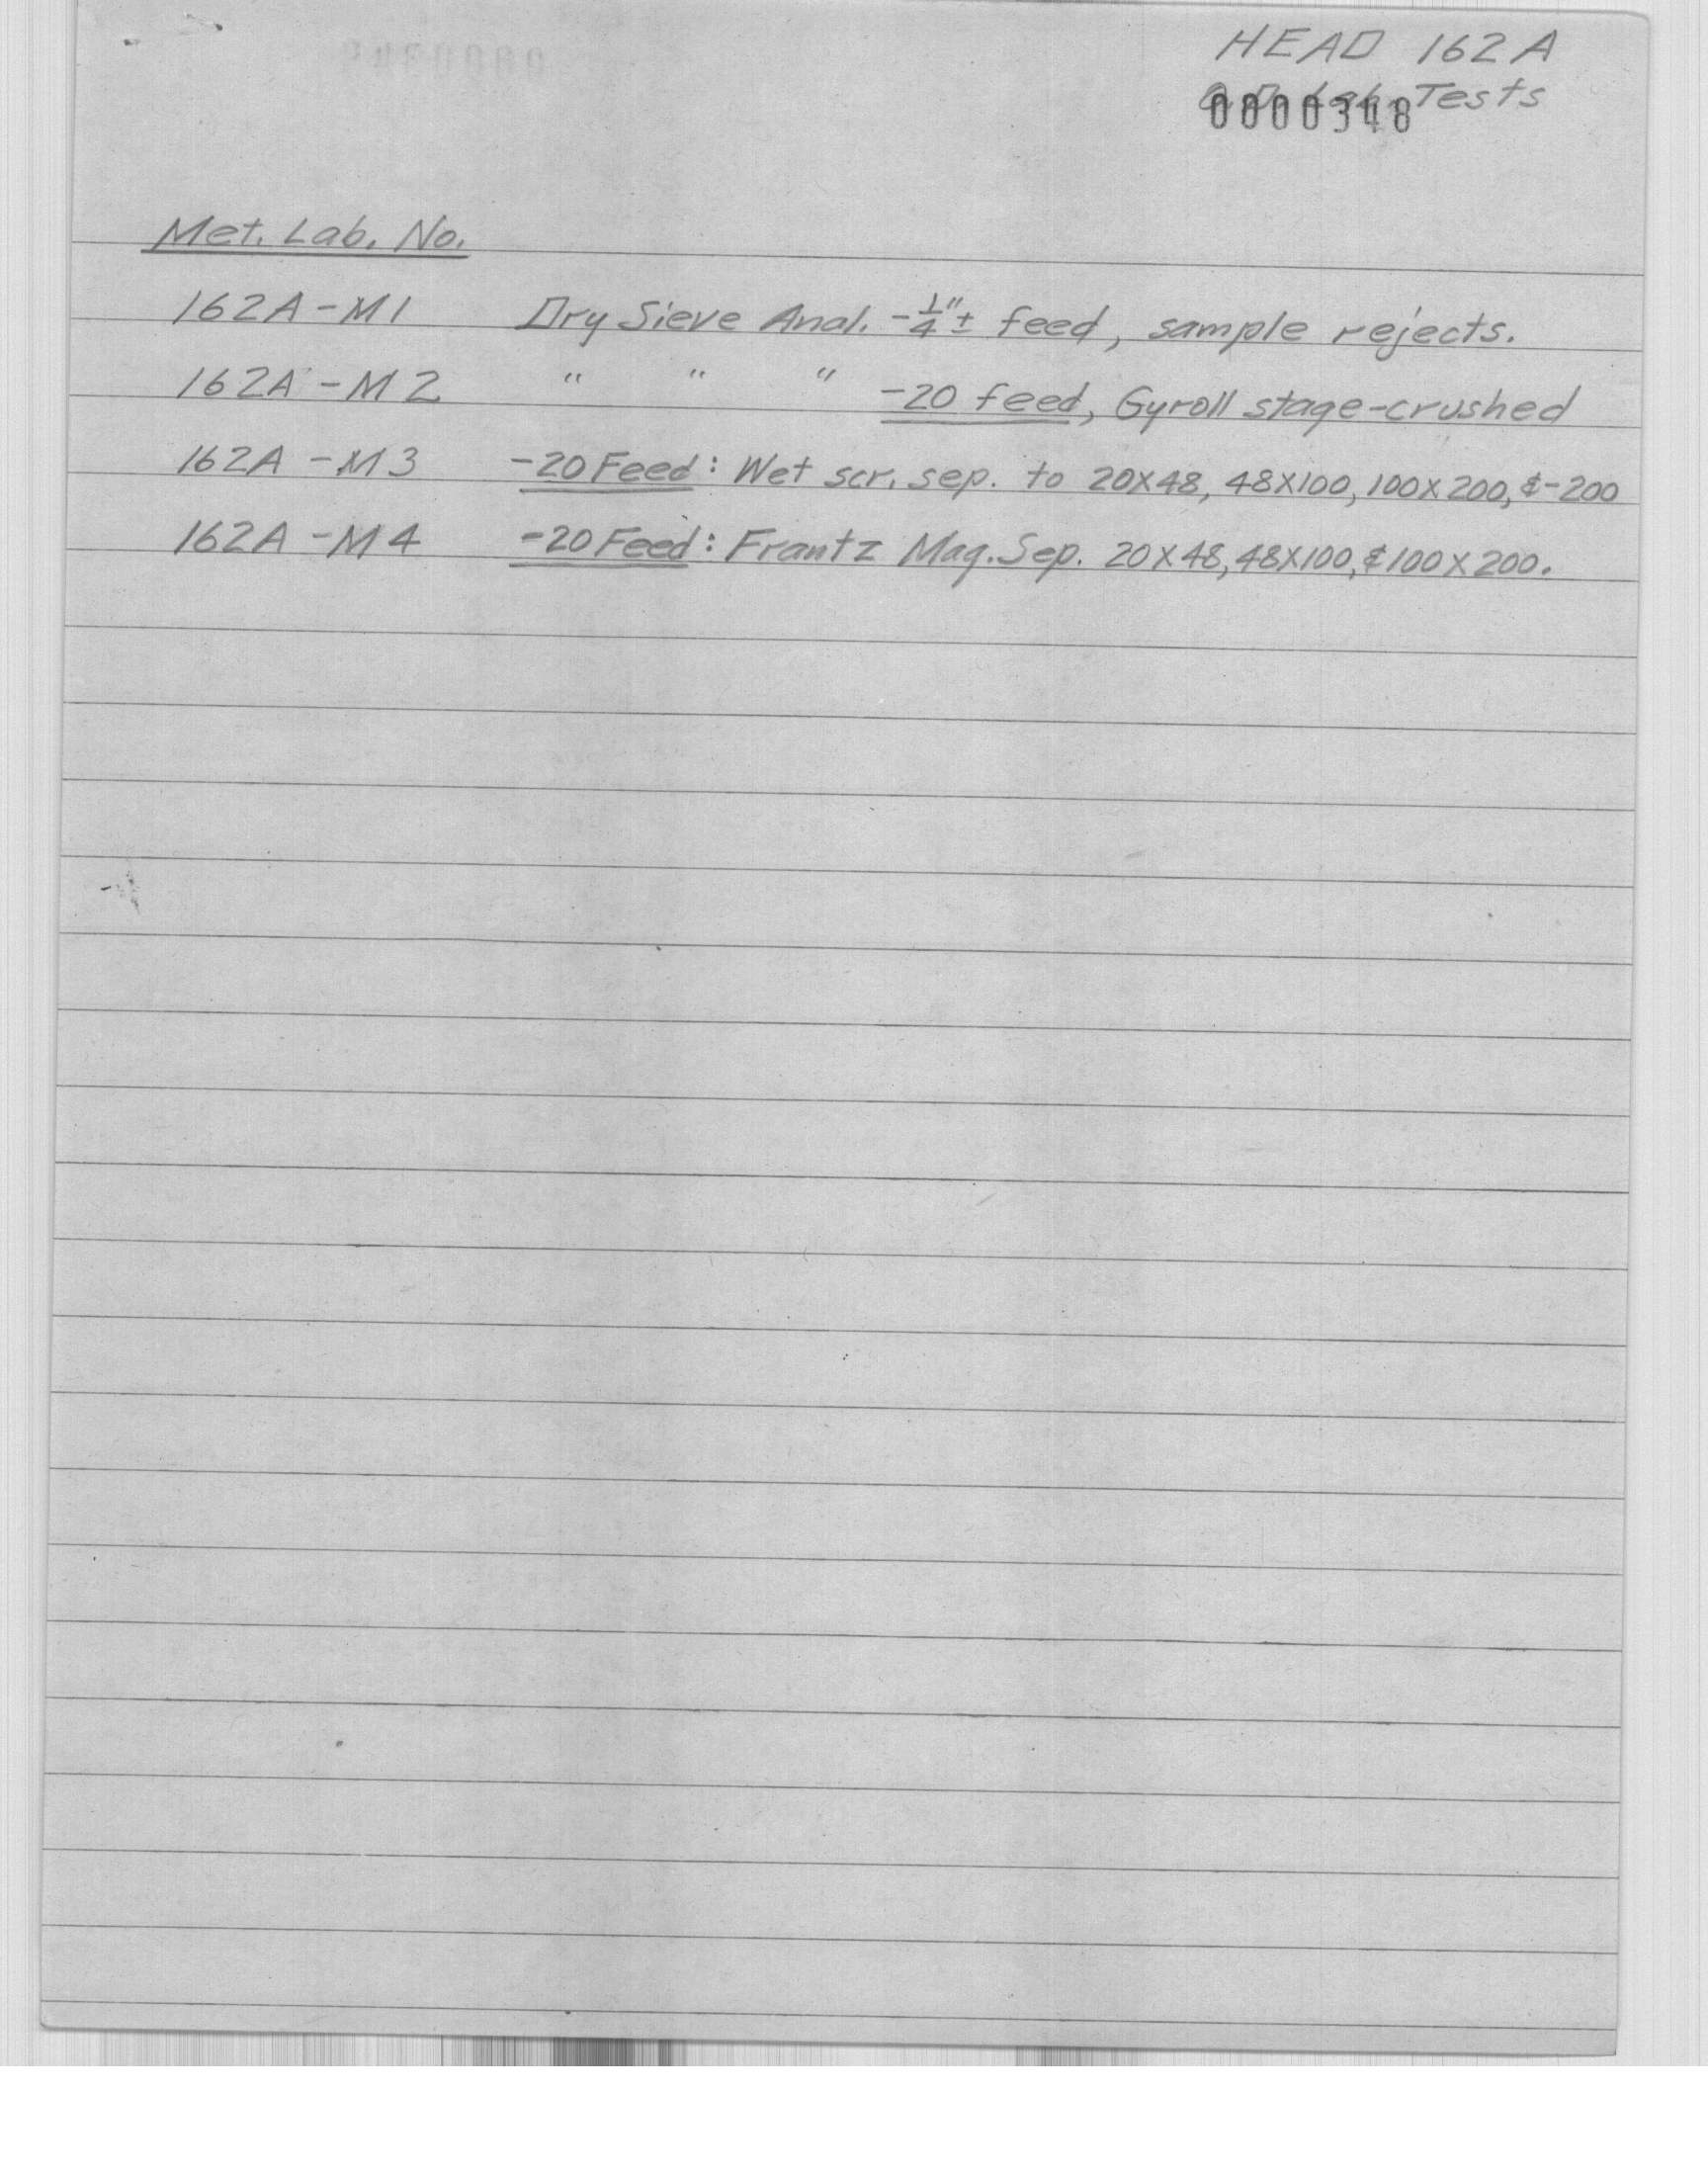 HEAD 162A
Lab. Tests
0000348
Met. Lab. No.
162A-M1 Dry Sieve Anal. -1/4"± feed, sample rejects.
162A-M2 " " " -20 feed, Gyroll stage-crushed
162A-M3 -20 Feed: Wet scr. sep. to 20X48, 48X100, 100X200, & -200
162A-M4 -20 Feed: Frantz Mag. Sep. 20X48, 48X100, & 100X200.